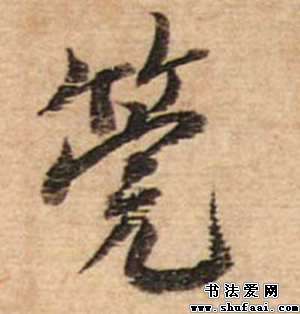 筦
书法爱网
www.shufaai.com